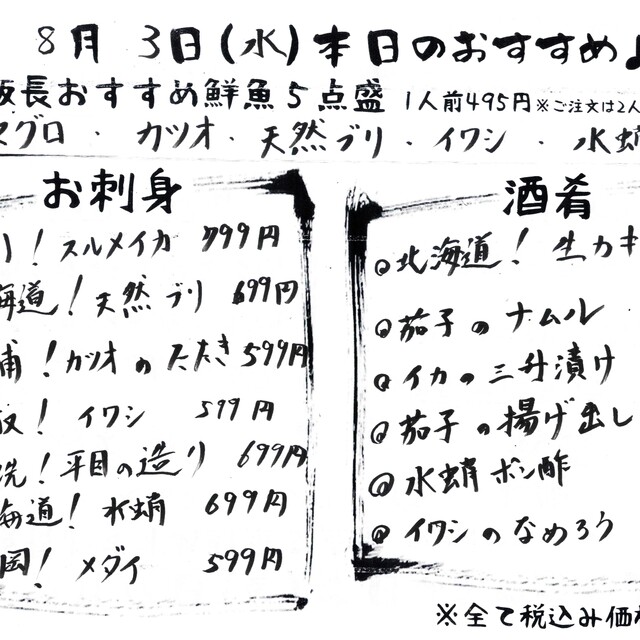 8月 3日(水)本日のおすすめ
板長おすすめ鮮魚5点盛 1人前495円※ご注文は2人
マグロ・カツオ・天然ブリ・イワシ・水蛸
お刺身
！スルメイカ 799円
海道！天然ブリ 699円
浦！カツオのたたき 599円
阪！イワシ 599円
洗！平目の造り 699円
海道！水蛸 699円
岡！メダイ 599円
酒肴
◎北海道！生カキ
◎茄子のナムル
◎イカの三升漬け
◎茄子の揚げ出し
◎水蛸ポン酢
◎イワシのなめろう
※全て税込み価格